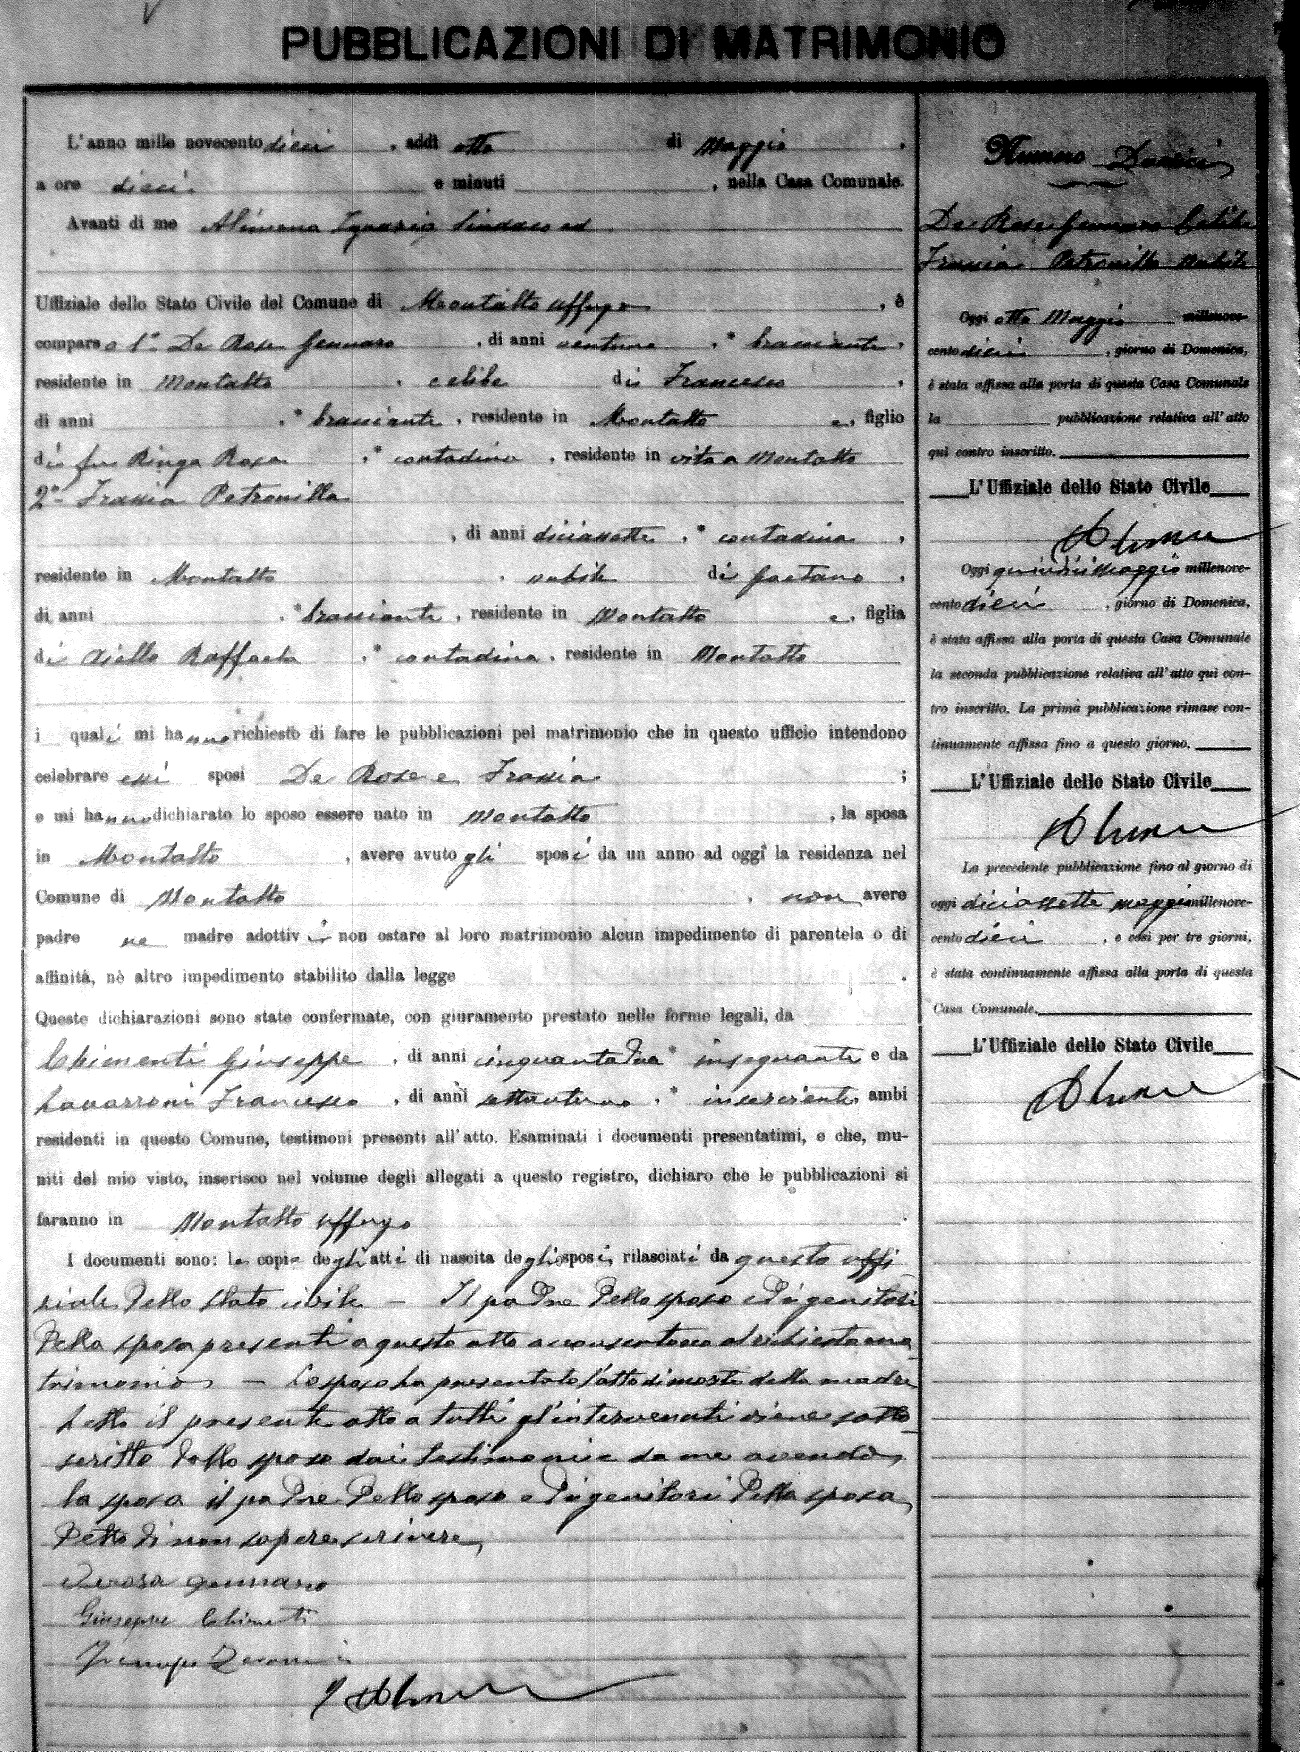 PUBBLICAZIONI DI MATRIMONIO
L'anno mille novecento dieci, addì otto di Maggio,
a ore dieci e minuti , nella Casa Comunale.
Avanti di me Alimena Ignazio Sindaco ed
Uffiziale dello Stato Civile del Comune di Montalto Uffugo, è
comparso 1° De Rose Gennaro, di anni ventuno, bracciante,
residente in Montalto, celibe di Francesco,
di anni , bracciante, residente in Montalto e, figlio
di fu Ringa Rosa, contadina, residente in vita a Montalto
2° Frassia Petronilla
, di anni diciassette, contadina,
residente in Montalto, nubile di Gaetano,
di anni , bracciante, residente in Montalto e, figlia
di Aiello Raffaela, contadina, residente in Montalto
i quali mi hanno richiesto di fare le pubblicazioni pel matrimonio che in questo ufficio intendono
celebrare essi sposi De Rose e Frassia;
e mi hanno dichiarato lo sposo essere nato in Montalto, la sposa
in Montalto, avere avuto gli sposi da un anno ad oggi la residenza nel
Comune di Montalto, non avere
padre ne madre adottivi non ostare al loro matrimonio alcun impedimento di parentela o di
affinità, nè altro impedimento stabilito dalla legge.
Queste dichiarazioni sono state confermate, con giuramento prestato nelle forme legali, da
Chimenti Giuseppe, di anni cinquantadue insegnante e da
Francesco, di anni settantuno, inserviente, ambi
residenti in questo Comune, testimoni presenti all'atto. Esaminati i documenti presentatimi, e che, mu-
niti del mio visto, inserisco nel volume degli allegati a questo registro, dichiaro che le pubblicazioni si
faranno in Montalto Uffugo.
I documenti sono: le copie degli atti di nascita degli sposi, rilasciati da questo uffi
ciale dello stato civile - Il padre dello sposo e di genitori
della sposa presenti a questo atto acconsentono al richiesto ma
trimonio - Lo sposo ha presentato l'atto di morte della madre
Letto il presente atto a tutti gl'intervenuti viene sotto
scritto dallo sposo dai testimoni e da me avendo
la sposa il padre dello sposo e di genitori della sposa
detto di non sapere scrivere
Derosa Gennaro
Giuseppe Chimenti
Numero Dodici
De Rose Gennaro Celibe
Frassia Petronilla nubile
Oggi otto Maggio millenove-
cento dieci, giorno di Domenica,
è stata affissa alla porta di questa Casa Comunale
la pubblicazione relativa all'atto
qui contro inscritto.
L'Uffiziale dello Stato Civile
Alimena
Oggi quindici Maggio millenove-
cento dieci, giorno di Domenica,
è stata affissa alla porta di questa Casa Comunale
la seconda pubblicazione relativa all'atto qui con-
tro inscritto. La prima pubblicazione rimase con-
tinuamente affissa fino a questo giorno.
L'Uffiziale dello Stato Civile
Alimena
La precedente pubblicazione fino al giorno di
oggi diciassette maggio millenove-
cento dieci, e così per tre giorni,
è stata continuamente affissa alla porta di questa
Casa Comunale.
L'Uffiziale dello Stato Civile
Alimena